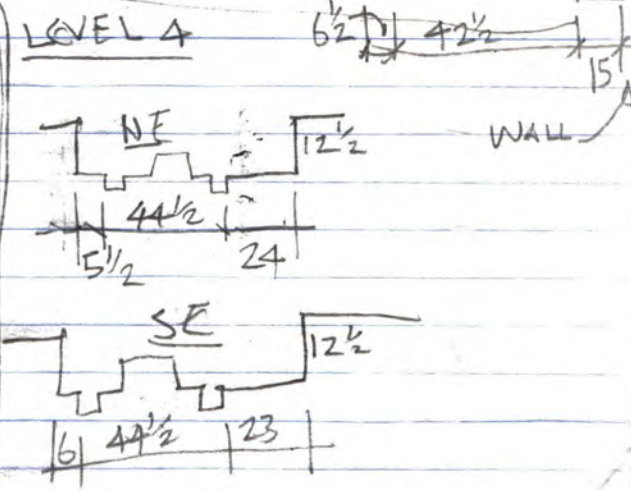 LEVEL 4
6 1/2 42 1/2 15
WALL
NE
12 1/2
5 1/2 44 1/2 24
SE
12 1/2
6 44 1/2 23